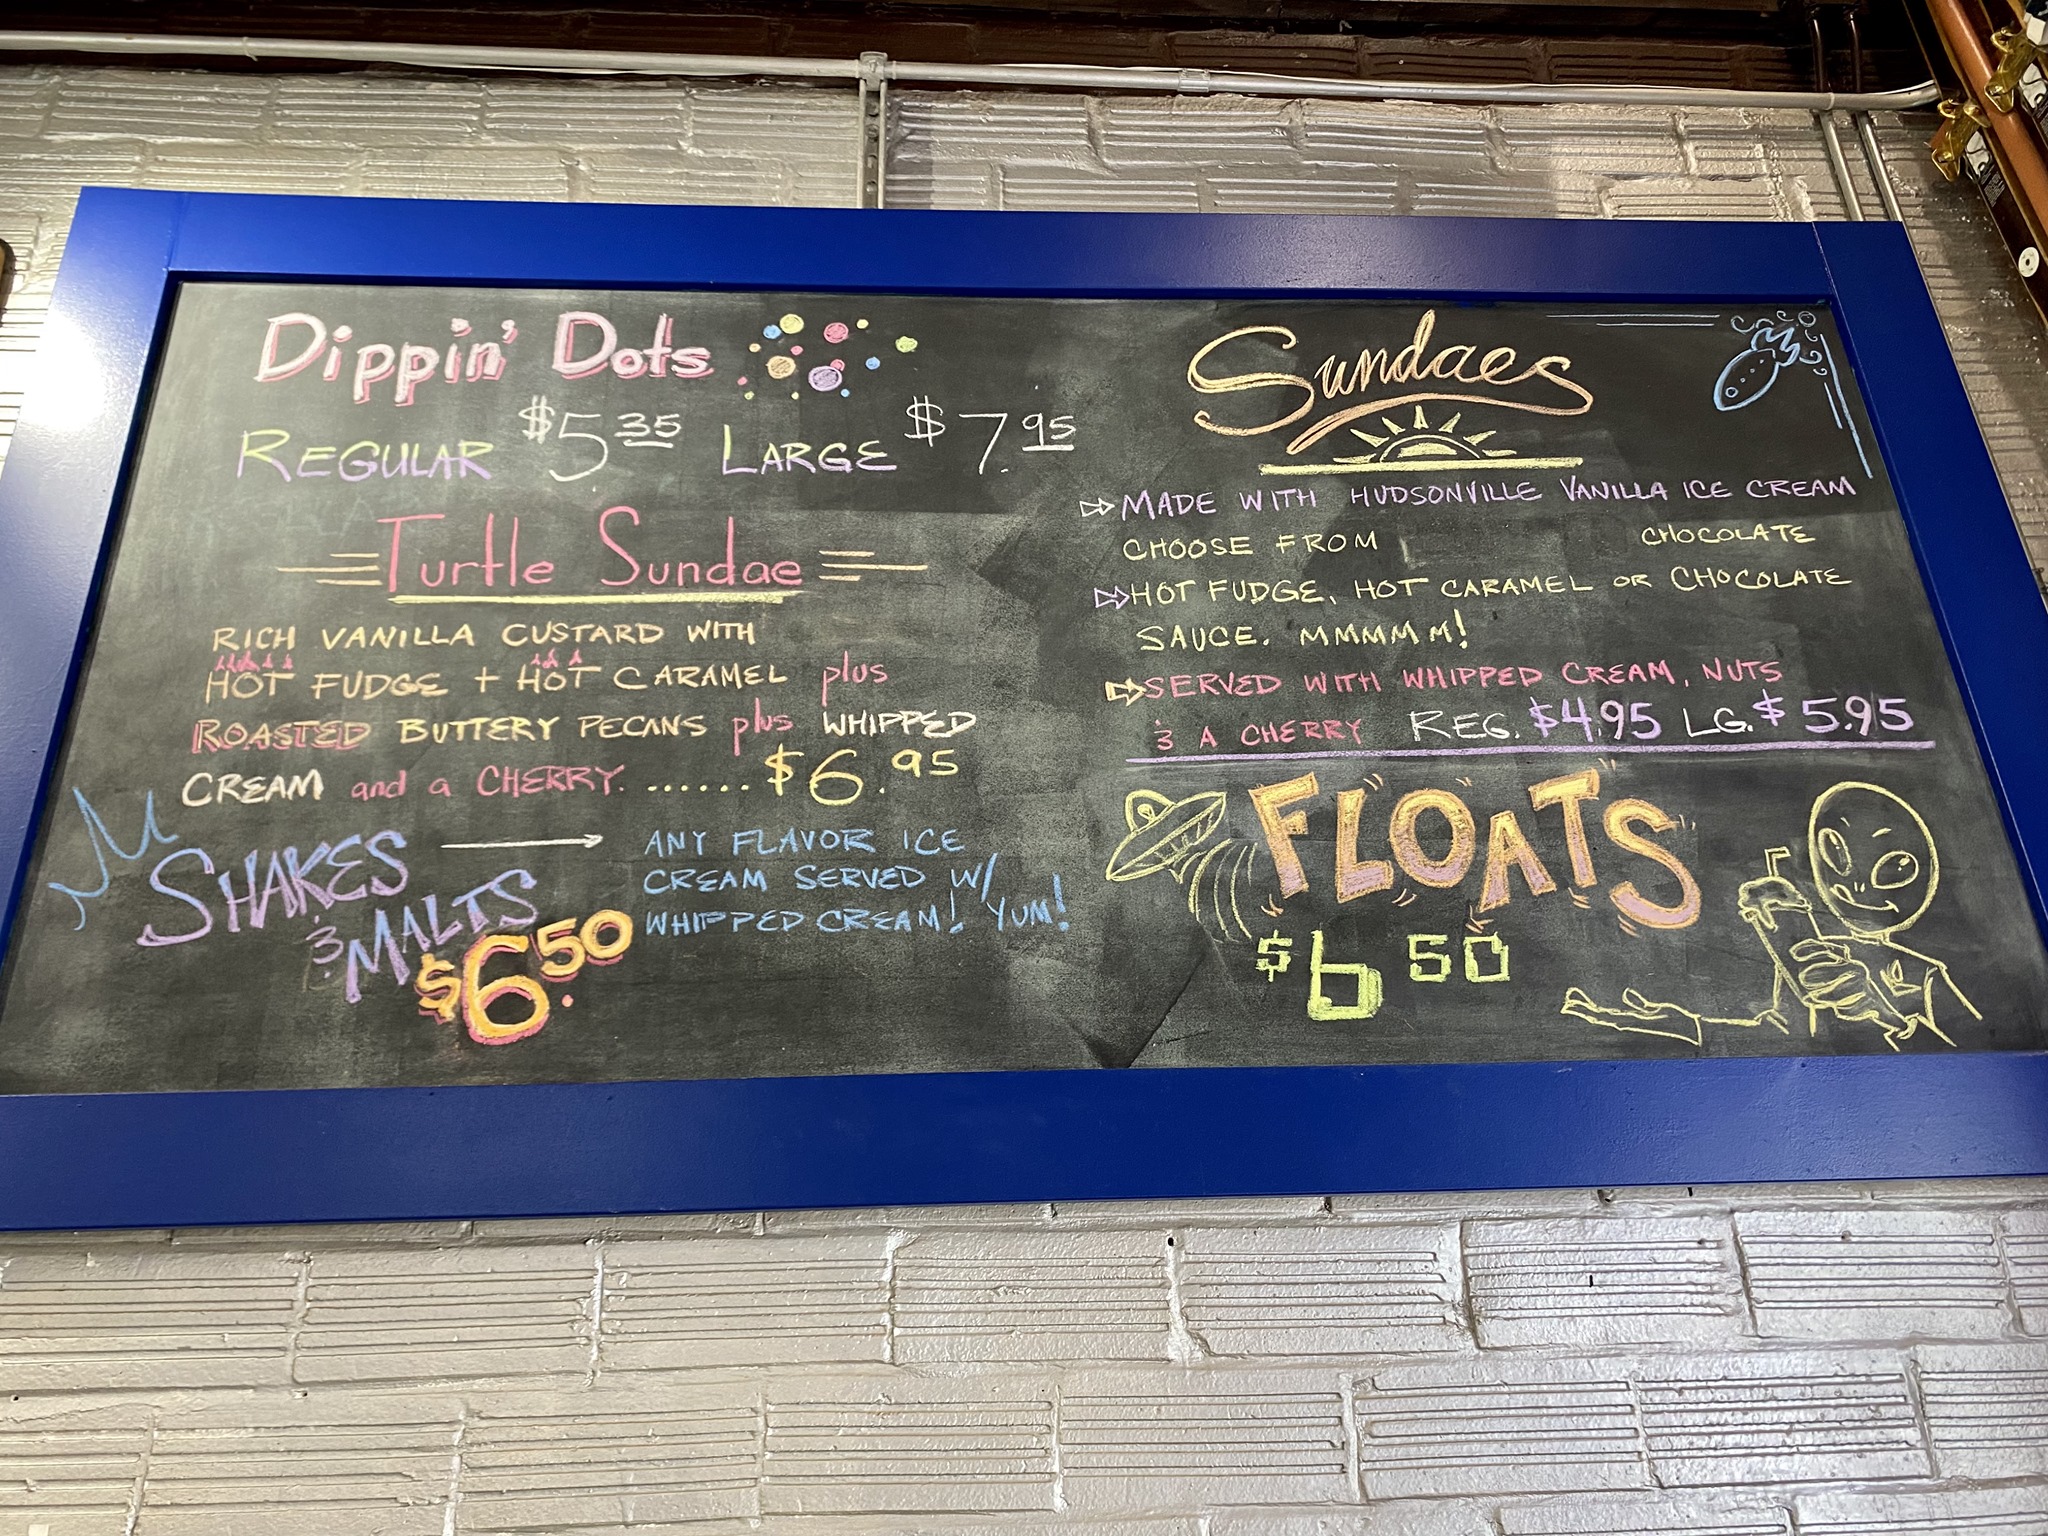 Dippin' Dots
REGULAR $5.35 LARGE $7.95
Turtle Sundae
RICH VANILLA CUSTARD WITH
HOT FUDGE + HOT CARAMEL plus
ROASTED BUTTERY PECANS plus WHIPPED
CREAM and a CHERRY. ...... $6.95
SHAKES
& MALTS
$6.50
ANY FLAVOR ICE
CREAM SERVED W/
WHIPPED CREAM! YUM!
Sundaes
MADE WITH HUDSONVILLE VANILLA ICE CREAM
CHOOSE FROM CHOCOLATE
HOT FUDGE, HOT CARAMEL OR CHOCOLATE
SAUCE. MMMMM!
SERVED WITH WHIPPED CREAM, NUTS
& A CHERRY REG. $4.95 LG. $5.95
FLOATS
$6 50